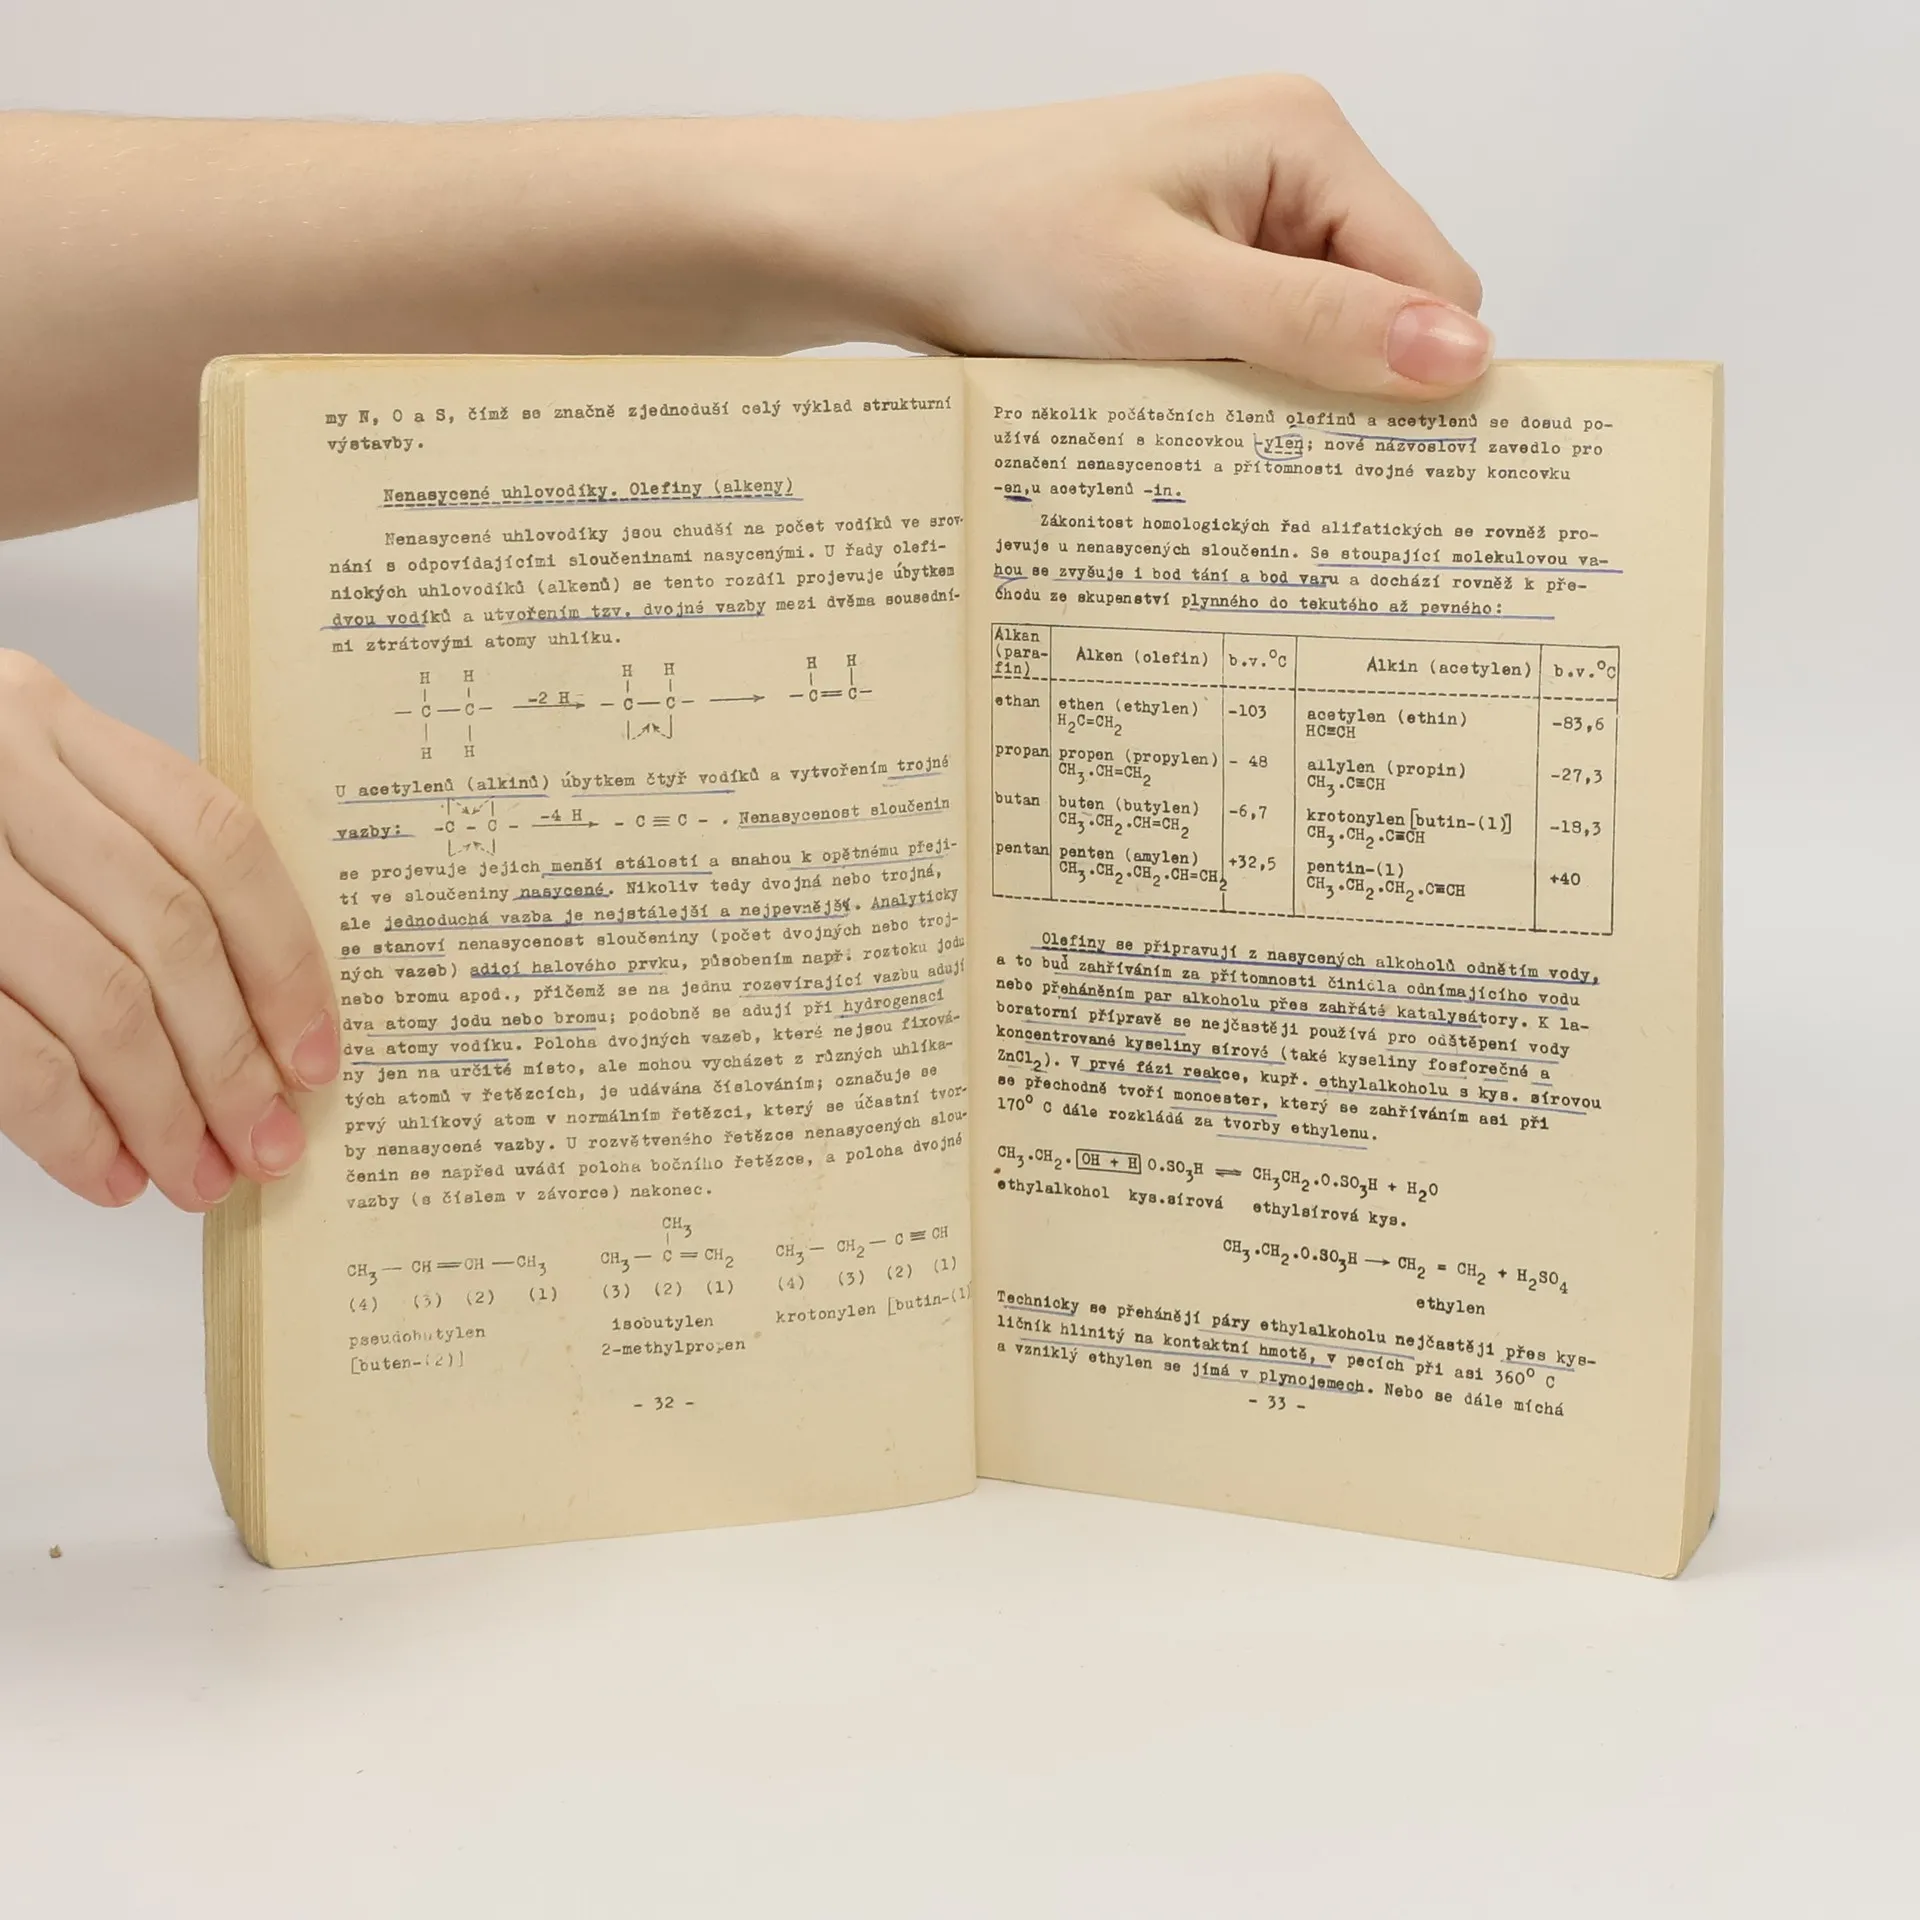 my N, O a S, čímž se značně zjednoduší celý výklad strukturní
výstavby.
Nenasycené uhlovodíky. Olefiny (alkeny)
Nenasycené uhlovodíky jsou chudší na počet vodíků ve srov-
nání s odpovídajícími sloučeninami nasycenými. U řady olefi-
nických uhlovodíků (alkenů) se tento rozdíl projevuje úbytkem
dvou vodíků a utvořením tzv. dvojné vazby mezi dvěma sousední-
mi ztrátovými atomy uhlíku.
H H H H H H
— C — C — -2 H → — C — C — → — C = C —
H H
U acetylenů (alkinů) úbytkem čtyř vodíků a vytvořením trojné
vazby: -C - C - -4 H → - C ≡ C - . Nenasycenost sloučenin
se projevuje jejich menší stálostí a snahou k opětnému přeji-
tí ve sloučeniny nasycené. Nikoliv tedy dvojná nebo trojná,
ale jednoduchá vazba je nejstálejší a nejpevnější. Analyticky
se stanoví nenasycenost sloučeniny (počet dvojných nebo troj-
ných vazeb) adicí halového prvku, působením např. roztoku jodu
nebo bromu apod., přičemž se na jednu rozevírající vazbu adují
dva atomy jodu nebo bromu; podobně se adují při hydrogenaci
dva atomy vodíku. Poloha dvojných vazeb, které nejsou fixová-
ny jen na určité místo, ale mohou vycházet z různých uhlíka-
tých atomů v řetězcích, je udávána číslováním; označuje se
prvý uhlíkový atom v normálním řetězci, který se účastní tvor-
by nenasycené vazby. U rozvětveného řetězce nenasycených slou-
čenin se napřed uvádí poloha bočního řetězce, a poloha dvojné
vazby (s číslem v závorce) nakonec.
CH₃
CH₃ — CH = CH — CH₃ CH₃ — C = CH₂ CH₃ — CH₂ — C ≡ CH
(4) (3) (2) (1) (3) (2) (1) (4) (3) (2) (1)
pseudobutylen isobutylen krotonylen [butin-(1)
[buten-(2)] 2-methylpropen
- 32 -
Pro několik počátečních členů olefinů a acetylenů se dosud po-
užívá označení s koncovkou -ylen; nové názvosloví zavedlo pro
označení nenasycenosti a přítomnosti dvojné vazby koncovku
-en,u acetylenů -in.
Zákonitost homologických řad alifatických se rovněž pro-
jevuje u nenasycených sloučenin. Se stoupající molekulovou va-
hou se zvyšuje i bod tání a bod varu a dochází rovněž k pře-
chodu ze skupenství plynného do tekutého až pevného:
Alkan (para-fin) Alken (olefin) b.v.°C Alkin (acetylen) b.v.°C
ethan ethen (ethylen) -103 acetylen (ethin) -83,6
H₂C=CH₂ HC≡CH
propan propen (propylen) - 48 allylen (propin) -27,3
CH₃.CH=CH₂ CH₃.C≡CH
butan buten (butylen) -6,7 krotonylen [butin-(1)] -18,3
CH₃.CH₂.CH=CH₂ CH₃.CH₂.C≡CH
pentan penten (amylen) +32,5 pentin-(1) +40
CH₃.CH₂.CH₂.CH=CH₂ CH₃.CH₂.CH₂.C≡CH
Olefiny se připravují z nasycených alkoholů odnětím vody,
a to buď zahříváním za přítomnosti činidla odnímajícího vodu
nebo přeháněním par alkoholu přes zahřáté katalysátory. K la-
boratorní přípravě se nejčastěji používá pro odštěpení vody
koncentrované kyseliny sírové (také kyseliny fosforečné a
ZnCl₂). V prvé fázi reakce, kupř. ethylalkoholu s kys. sírovou
se přechodně tvoří monoester, který se zahříváním asi při
170° C dále rozkládá za tvorby ethylenu.
CH₃.CH₂.OH + H O.SO₃H ⇌ CH₃CH₂.O.SO₃H + H₂O
ethylalkohol kys.sírová ethylsírová kys.
CH₃.CH₂.O.SO₃H → CH₂ = CH₂ + H₂SO₄
ethylen
Technicky se přehánějí páry ethylalkoholu nejčastěji přes kys-
ličník hlinitý na kontaktní hmotě, v pecích při asi 360° C
a vzniklý ethylen se jímá v plynojemech. Nebo se dále míchá
- 33 -